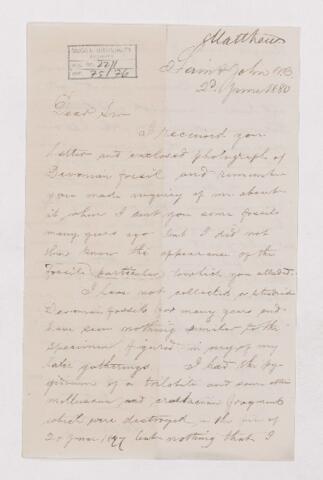 Matthew
McGILL UNIVERSITY
ARCHIVES
ACC. NO. 2211
REF. 75/76
Saint John N.B.
2d June 1880
Dear Sir
I received your
letter and enclosed photograph of
Devonian fossil and remember
you made inquiry of me about
it, when I sent you some fossils
many years ago but I did not
then know the appearance of the
fossils particular to which you alluded.
I have not collected or studied
Devonian fossils for many years and
have seen nothing similar to the
specimen figured in any of my
later gatherings. I had the py-
gidium of a trilobite and some other
molluscan and crustacean fragments
which were destroyed in the fire of
20 June 1877 but nothing that I